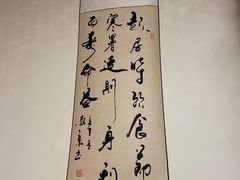 起居時飲食節
寒暑適則身利
而壽命益